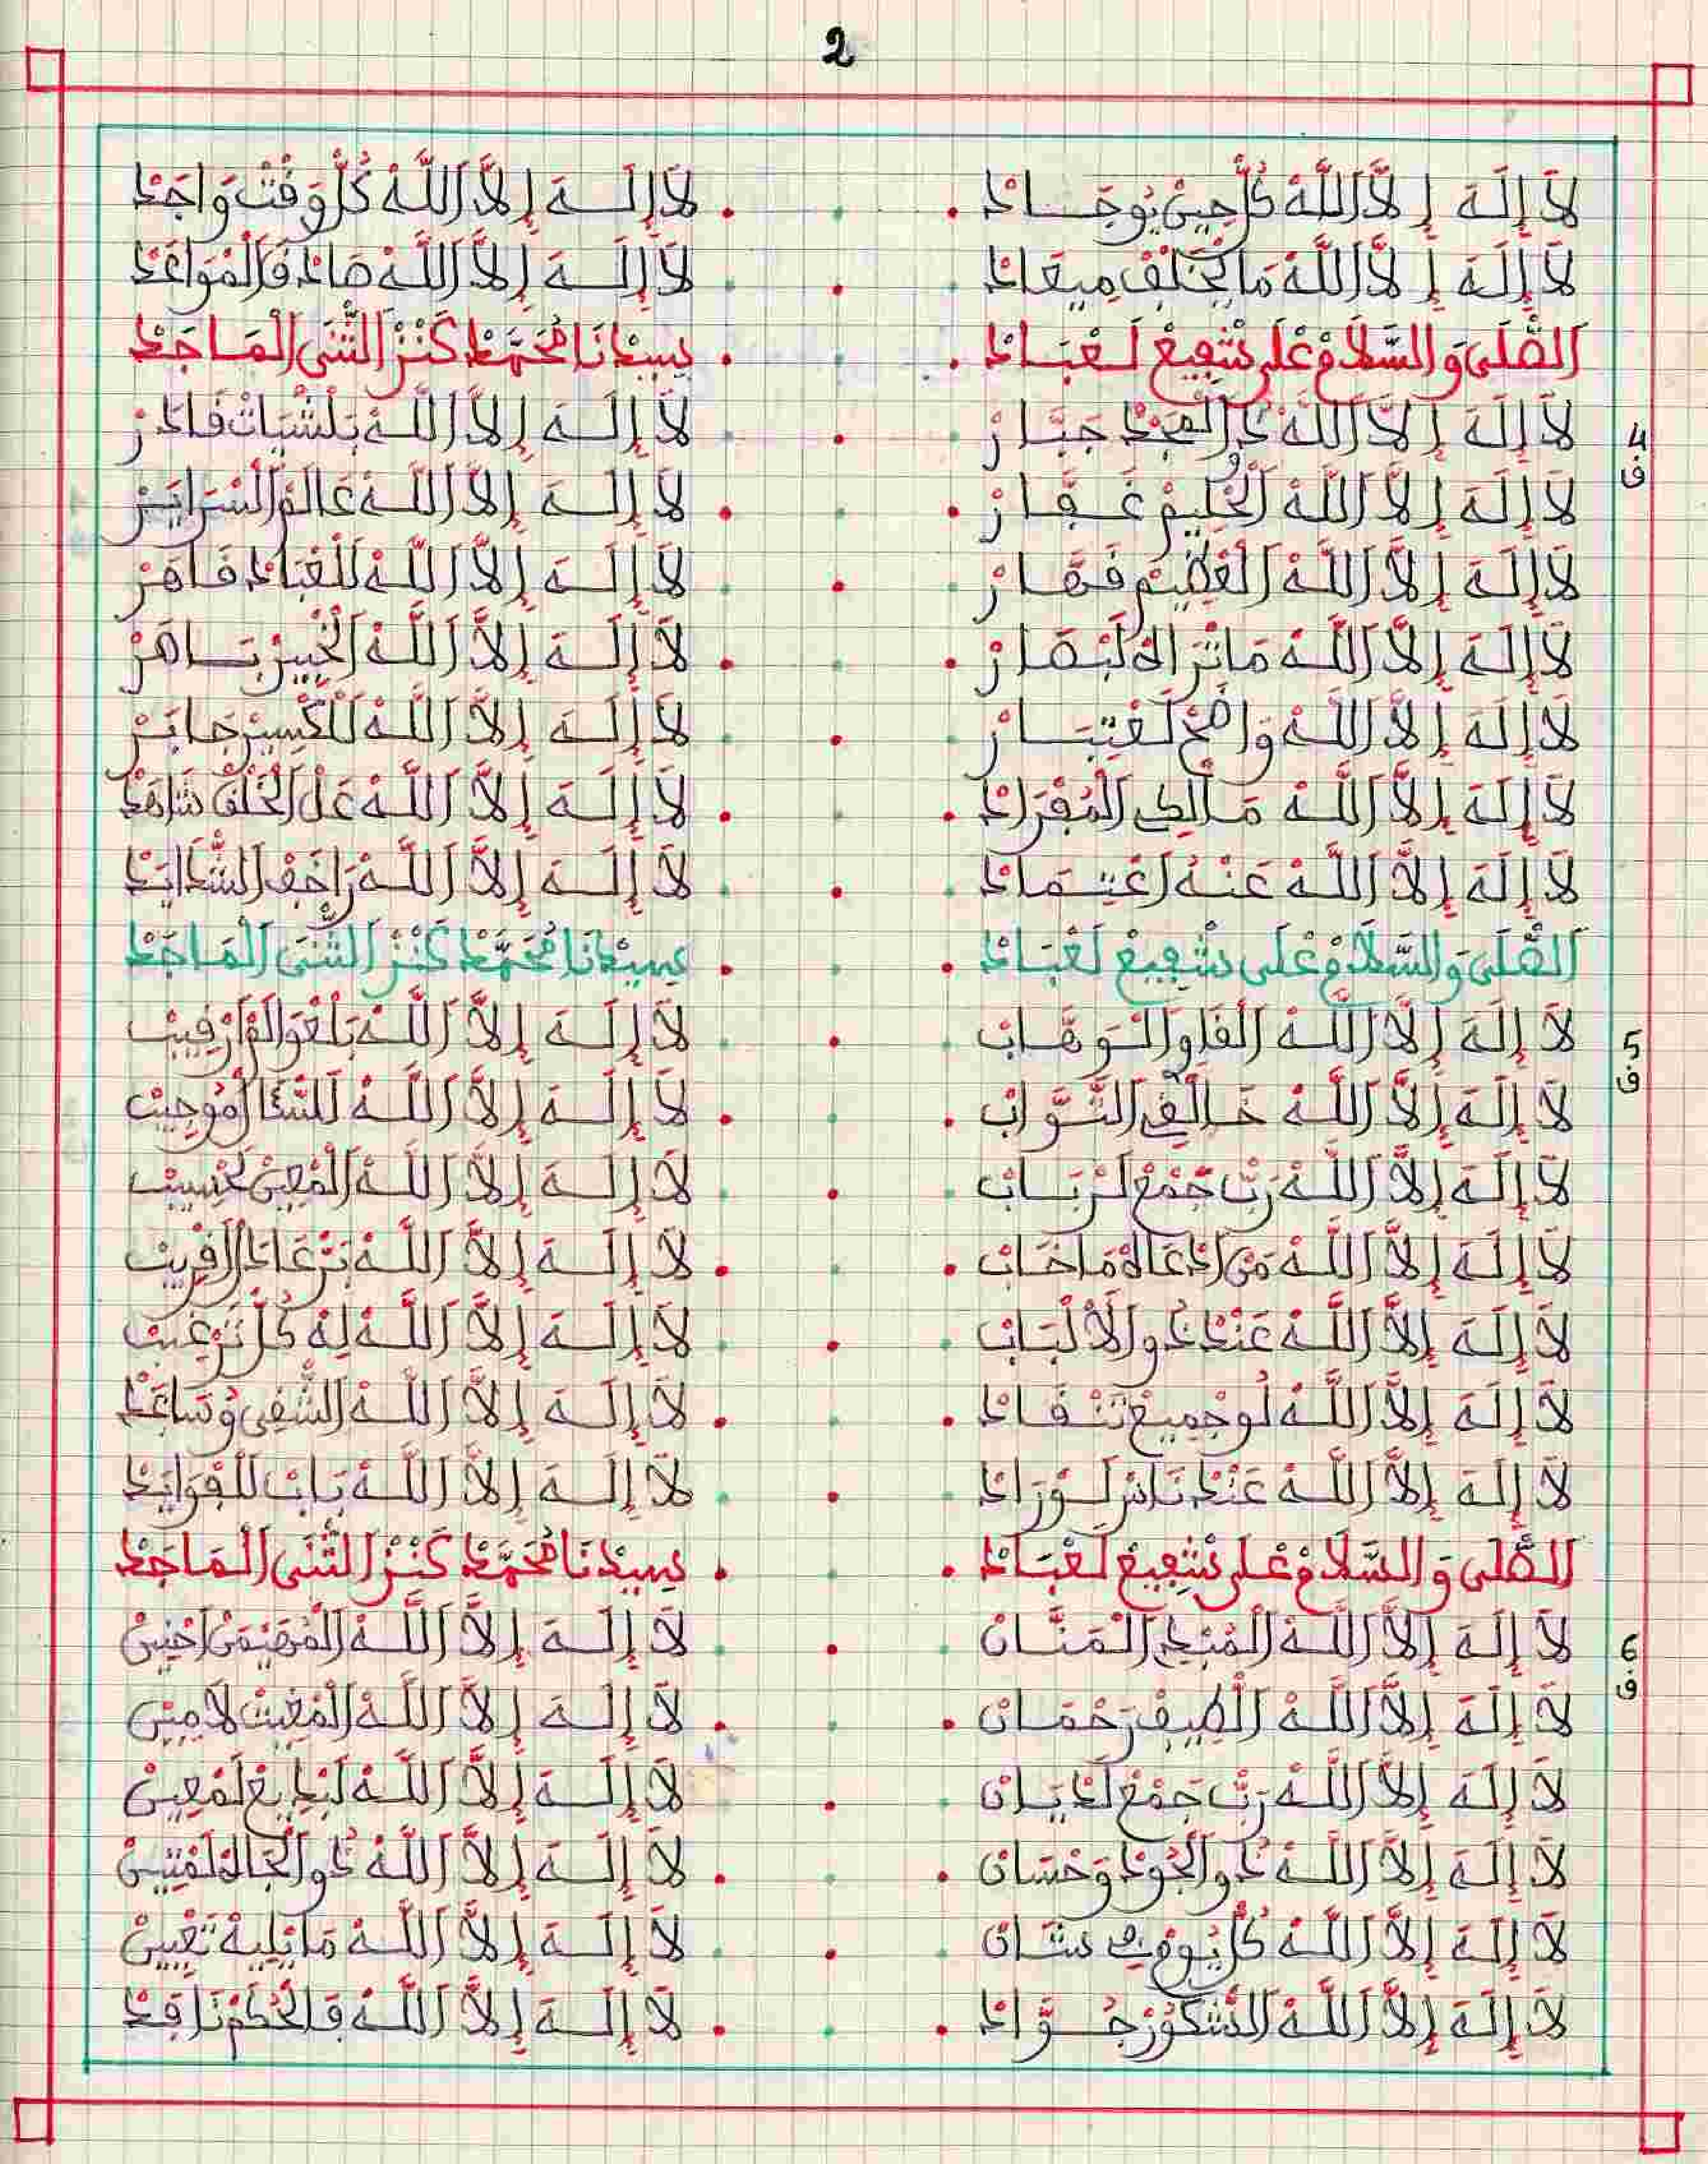 2
لَا إِلَهَ إِلَّا اللَّهْ كُلّْ حِينْ يُوجَــادْ . لَا إِلَــهَ إِلَّا اللَّهْ كُلّْ وَقْتْ وَاجَدْ
لَا إِلَهَ إِلَّا اللَّهْ مَا يْخَلَّفْ مِيعَادْ . لَا إِلَــهَ إِلَّا اللَّهْ صَادْقْ الْمْوَاعَدْ
الصّْلَى وَالسَّلَامْ عْلَى شْفِيعْ لَعْبَــادْ . سِيدْنَا مُحَمَّدْ كَنْزْ الثّْنَى الْمَـاجَدْ
4
ف
لَا إِلَهَ إِلَّا اللَّهْ الْمَجْدْ جَبَّــارْ . لَا إِلَــهَ إِلَّا اللَّهْ قَادَرْ
لَا إِلَهَ إِلَّا اللَّهْ الْحْلِيمْ غَــفَّــارْ . لَا إِلَــهَ إِلَّا اللَّهْ عَالَمْ السّْرَايَــرْ
لَا إِلَهَ إِلَّا اللَّهْ الْعْظِيمْ قَــهَّــارْ . لَا إِلَــهَ إِلَّا اللَّهْ لَلْعْبَادْ قَــاهَرْ
لَا إِلَهَ إِلَّا اللَّهْ مَا تْرَاهْ لَبْصَــارْ . لَا إِلَــهَ إِلَّا اللَّهْ الْخْبِيرْ بَــاهَرْ
لَا إِلَهَ إِلَّا اللَّهْ وَاضْحْ لَعْتِبَــارْ . لَا إِلَــهَ إِلَّا اللَّهْ لَلْكْسِيرْ جَابَــرْ
لَا إِلَهَ إِلَّا اللَّهْ مَــالْكِ الْمُفْرَادْ . لَا إِلَــهَ إِلَّا اللَّهْ عَلْ الْخَلْقْ شَاهَدْ
لَا إِلَهَ إِلَّا اللَّهْ عَنْــهُ اَعْتِــمَادْ . لَا إِلَــهَ إِلَّا اللَّهْ الشّْدَايَدْ
الصّْلَى وَالسَّلَامْ عْلَى شْفِيعْ لَعْبَــادْ . سِيدْنَا مُحَمَّدْ كَنْزْ الثّْنَى الْمَـاجَدْ
5
ف
لَا إِلَهَ إِلَّا اللَّهْ الْــوَهَّــابْ . لَا إِلَــهَ إِلَّا اللَّهْ بَلْعْوَالَمْ ارْقِيبْ
لَا إِلَهَ إِلَّا اللَّهْ خَــالْقِي التَّــوَّابْ . لَا إِلَــهَ إِلَّا اللَّهْ لَلنّْدَا
لَا إِلَهَ إِلَّا اللَّهْ رَبّْ جَمْعْ لَرْبَــابْ . لَا إِلَــهَ إِلَّا اللَّهْ الْمْعِينْ لَحْسِيبْ
لَا إِلَهَ إِلَّا اللَّهْ مَنْ ادْعَاهْ مَا خَــابْ . لَا إِلَــهَ إِلَّا اللَّهْ
لَا إِلَهَ إِلَّا اللَّهْ عَنْدْ دُو الْأَلْبَــابْ . لَا إِلَــهَ إِلَّا اللَّهْ لِهْ كُلّْ تَرْغِيبْ
لَا إِلَهَ إِلَّا اللَّهْ لُو جْمِيعْ تَنْــقَــادْ . لَا إِلَــهَ إِلَّا اللَّهْ الشّْقِي وُسَاعَدْ
لَا إِلَهَ إِلَّا اللَّهْ عَنْدْ نَاسْ لَــوْرَادْ . لَا إِلَــهَ إِلَّا اللَّهْ بَــابْ لَلْفْوَايَدْ
الصّْلَى وَالسَّلَامْ عْلَى شْفِيعْ لَعْبَــادْ . سِيدْنَا مُحَمَّدْ كَنْزْ الثّْنَى الْمَـاجَدْ
6
ف
لَا إِلَهَ إِلَّا اللَّهْ الْمُبْدِي الْــمَنَّــانْ . لَا إِلَــهَ إِلَّا اللَّهْ الْمُهَيْمَنْ احْنِينْ
لَا إِلَهَ إِلَّا اللَّهْ الْلْطِيفْ رَحْمَــانْ . لَا إِلَــهَ إِلَّا اللَّهْ الْمْغِيثْ لَامِينْ
لَا إِلَهَ إِلَّا اللَّهْ رَبّْ جَمْعْ لَدْيَــانْ . لَا إِلَــهَ إِلَّا اللَّهْ لَبْدِيعْ لَمْعِينْ
لَا إِلَهَ إِلَّا اللَّهْ دُو الْجُودْ وَحْسَــانْ . لَا إِلَــهَ إِلَّا اللَّهْ دُو الْجَاهْ لَمْتِينْ
لَا إِلَهَ إِلَّا اللَّهْ كُلّْ يُومْ فِي شَــانْ . لَا إِلَــهَ إِلَّا اللَّهْ مَا يْلِيهْ تَعْيِينْ
لَا إِلَهَ إِلَّا اللَّهْ الشَّكُورْ جُــوَّادْ . لَا إِلَــهَ إِلَّا اللَّهْ فَالْحُكْمْ نَافَدْ